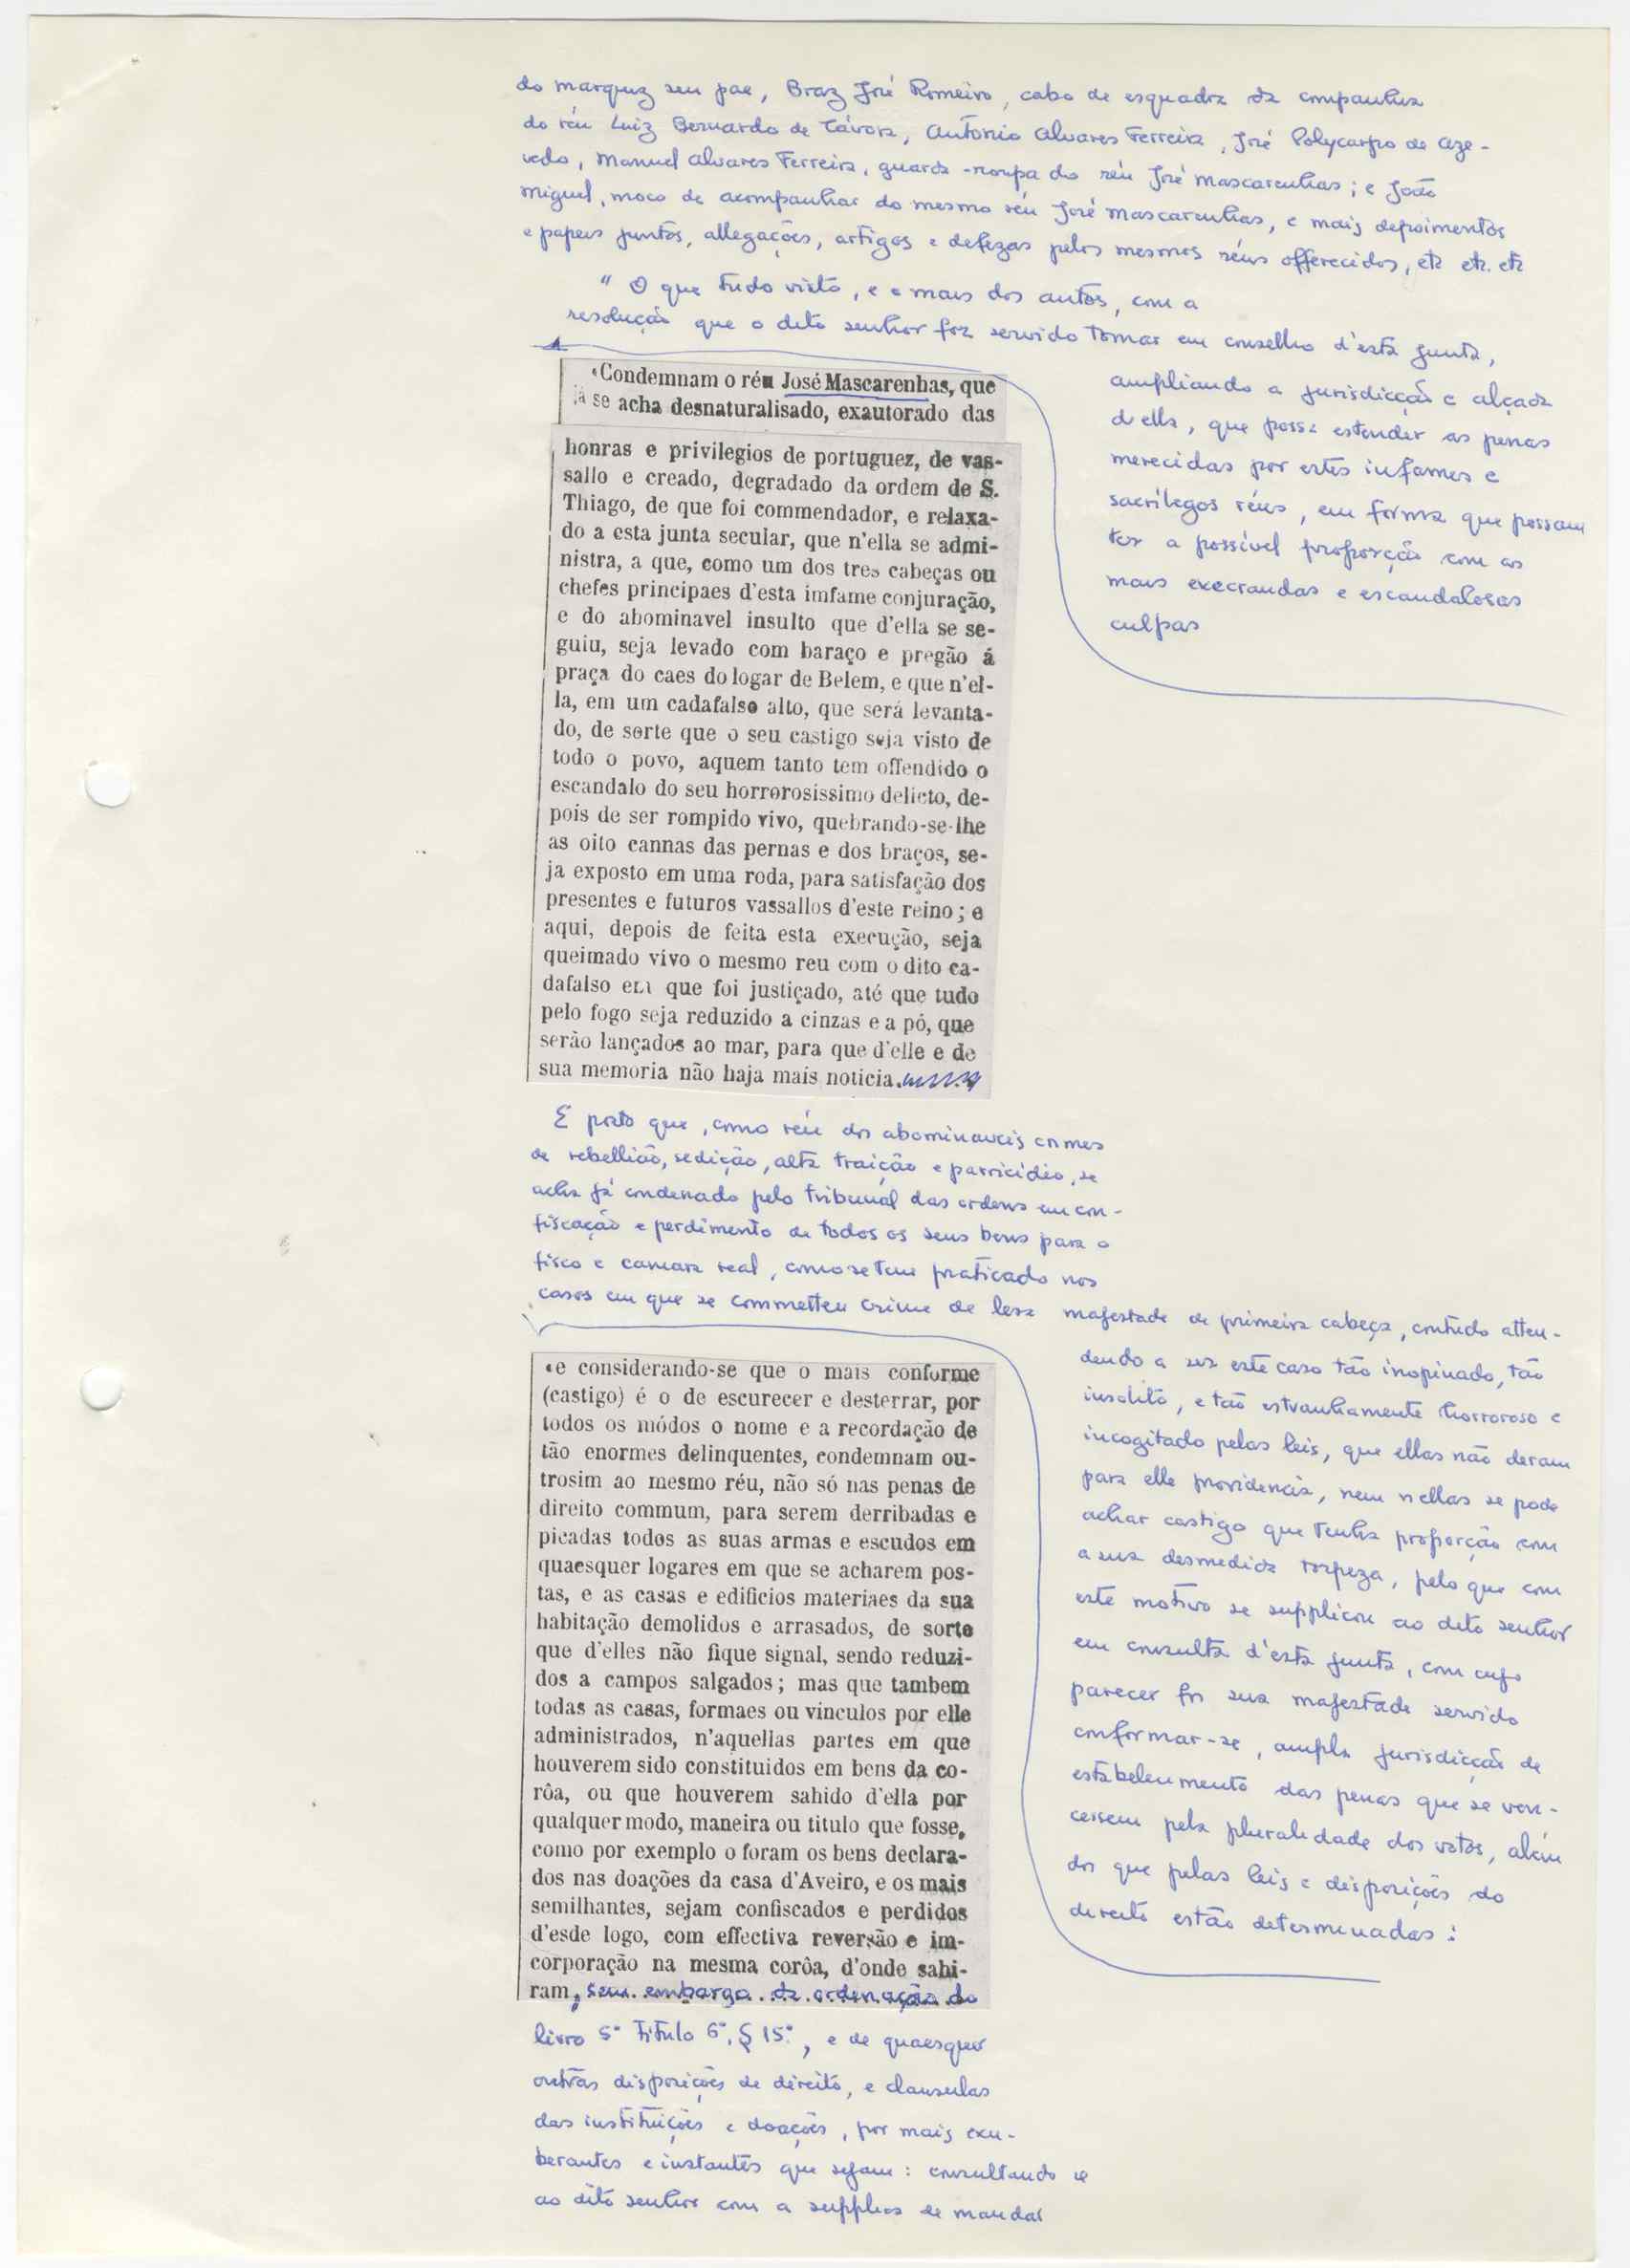 do marquez seu pae, Braz José Romeiro, cabo de esquadra da companhia
do réu Luiz Bernardo de Távora, Antonio Alvares Ferreira, José Polycarpo de Aze-
vedo, Manuel Alvares Ferreira, guarda-roupa do réu José Mascarenhas; e João
Miguel, moco de acompanhar do mesmo réu José Mascarenhas, e mais depoimentos
e papeis juntos, allegações, artigos e defezas pelos mesmos réus offerecidos, etc etc. etc
" O que tudo visto, e o mais dos autos, com a
resolução que o dito senhor foi servido tomar em conselho d'esta junta,
ampliando a jurisdicção e alçada
d'ella, que possa estender as penas
merecidas por estes infames e
sacrilegos réus, em forma que possam
ter a possível proporção com as
mais execrandas e escandalosas
culpas
«Condemnam o réu José Mascarenhas, que
já se acha desnaturalisado, exautorado das
honras e privilegios de portuguez, de vas-
sallo e creado, degradado da ordem de S.
Thiago, de que foi commendador, e relaxa-
do a esta junta secular, que n'ella se admi-
nistra, a que, como um dos tres cabeças ou
chefes principaes d'esta imfame conjuração,
e do abominavel insulto que d'ella se se-
guiu, seja levado com baraço e pregão á
praça do caes do logar de Belem, e que n'el-
la, em um cadafalso alto, que será levanta-
do, de sorte que o seu castigo seja visto de
todo o povo, aquem tanto tem offendido o
escandalo do seu horrorosissimo delicto, de-
pois de ser rompido vivo, quebrando-se-lhe
as oito cannas das pernas e dos braços, se-
ja exposto em uma roda, para satisfação dos
presentes e futuros vassallos d'este reino; e
aqui, depois de feita esta execução, seja
queimado vivo o mesmo reu com o dito ca-
dafalso em que foi justiçado, até que tudo
pelo fogo seja reduzido a cinzas e a pó, que
serão lançados ao mar, para que d'elle e de
sua memoria não haja mais noticia.
E posto que, como réu dos abominaveis crimes
de rebellião, sedição, alta traição e parricidio, se
acha já condenado pelo tribunal das ordens em con-
fiscação e perdimento de todos os seus bens para o
fisco e camara real, como se tem praticado nos
casos em que se commetteu crime de lesa majestade de primeira cabeça, contudo atten-
dendo a ser este caso tão inopinado, tão
insolito, e tão estranhamente horroroso e
incogitado pelas leis, que ellas não deram
para elle providencia, nem n'ellas se pode
achar castigo que tenha proporção com
a sua desmedida torpeza, pelo que com
este motivo se supplicou ao dito senhor
em consulta d'esta junta, com cujo
parecer foi sua majestade servido
conformar-se, ampla jurisdicção de
estabelecimento das penas que se ven-
cessem pela pluralidade dos votos, além
dos que pelas leis e disposições do
direito estão determinadas:
«e considerando-se que o mais conforme
(castigo) é o de escurecer e desterrar, por
todos os módos o nome e a recordação de
tão enormes delinquentes, condemnam ou-
trosim ao mesmo réu, não só nas penas de
direito commum, para serem derribadas e
picadas todos as suas armas e escudos em
quaesquer logares em que se acharem pos-
tas, e as casas e edificios materiaes da sua
habitação demolidos e arrasados, de sorte
que d'elles não fique signal, sendo reduzi-
dos a campos salgados; mas que tambem
todas as casas, formaes ou vinculos por elle
administrados, n'aquellas partes em que
houverem sido constituidos em bens da co-
rôa, ou que houverem sahido d'ella por
qualquer modo, maneira ou titulo que fosse,
como por exemplo o foram os bens declara-
dos nas doações da casa d'Aveiro, e os mais
semilhantes, sejam confiscados e perdidos
d'esde logo, com effectiva reversão e im-
corporação na mesma corôa, d'onde sahi-
ram, sem embargo da ordenação do
livro 5º Titulo 6º, § 15º, e de quaesquer
outras disposições de direito, e clausulas
das instituições e doações, por mais exu-
berantes e instantes que sejam: consultando se
ao dito senhor com a supplica de mandar